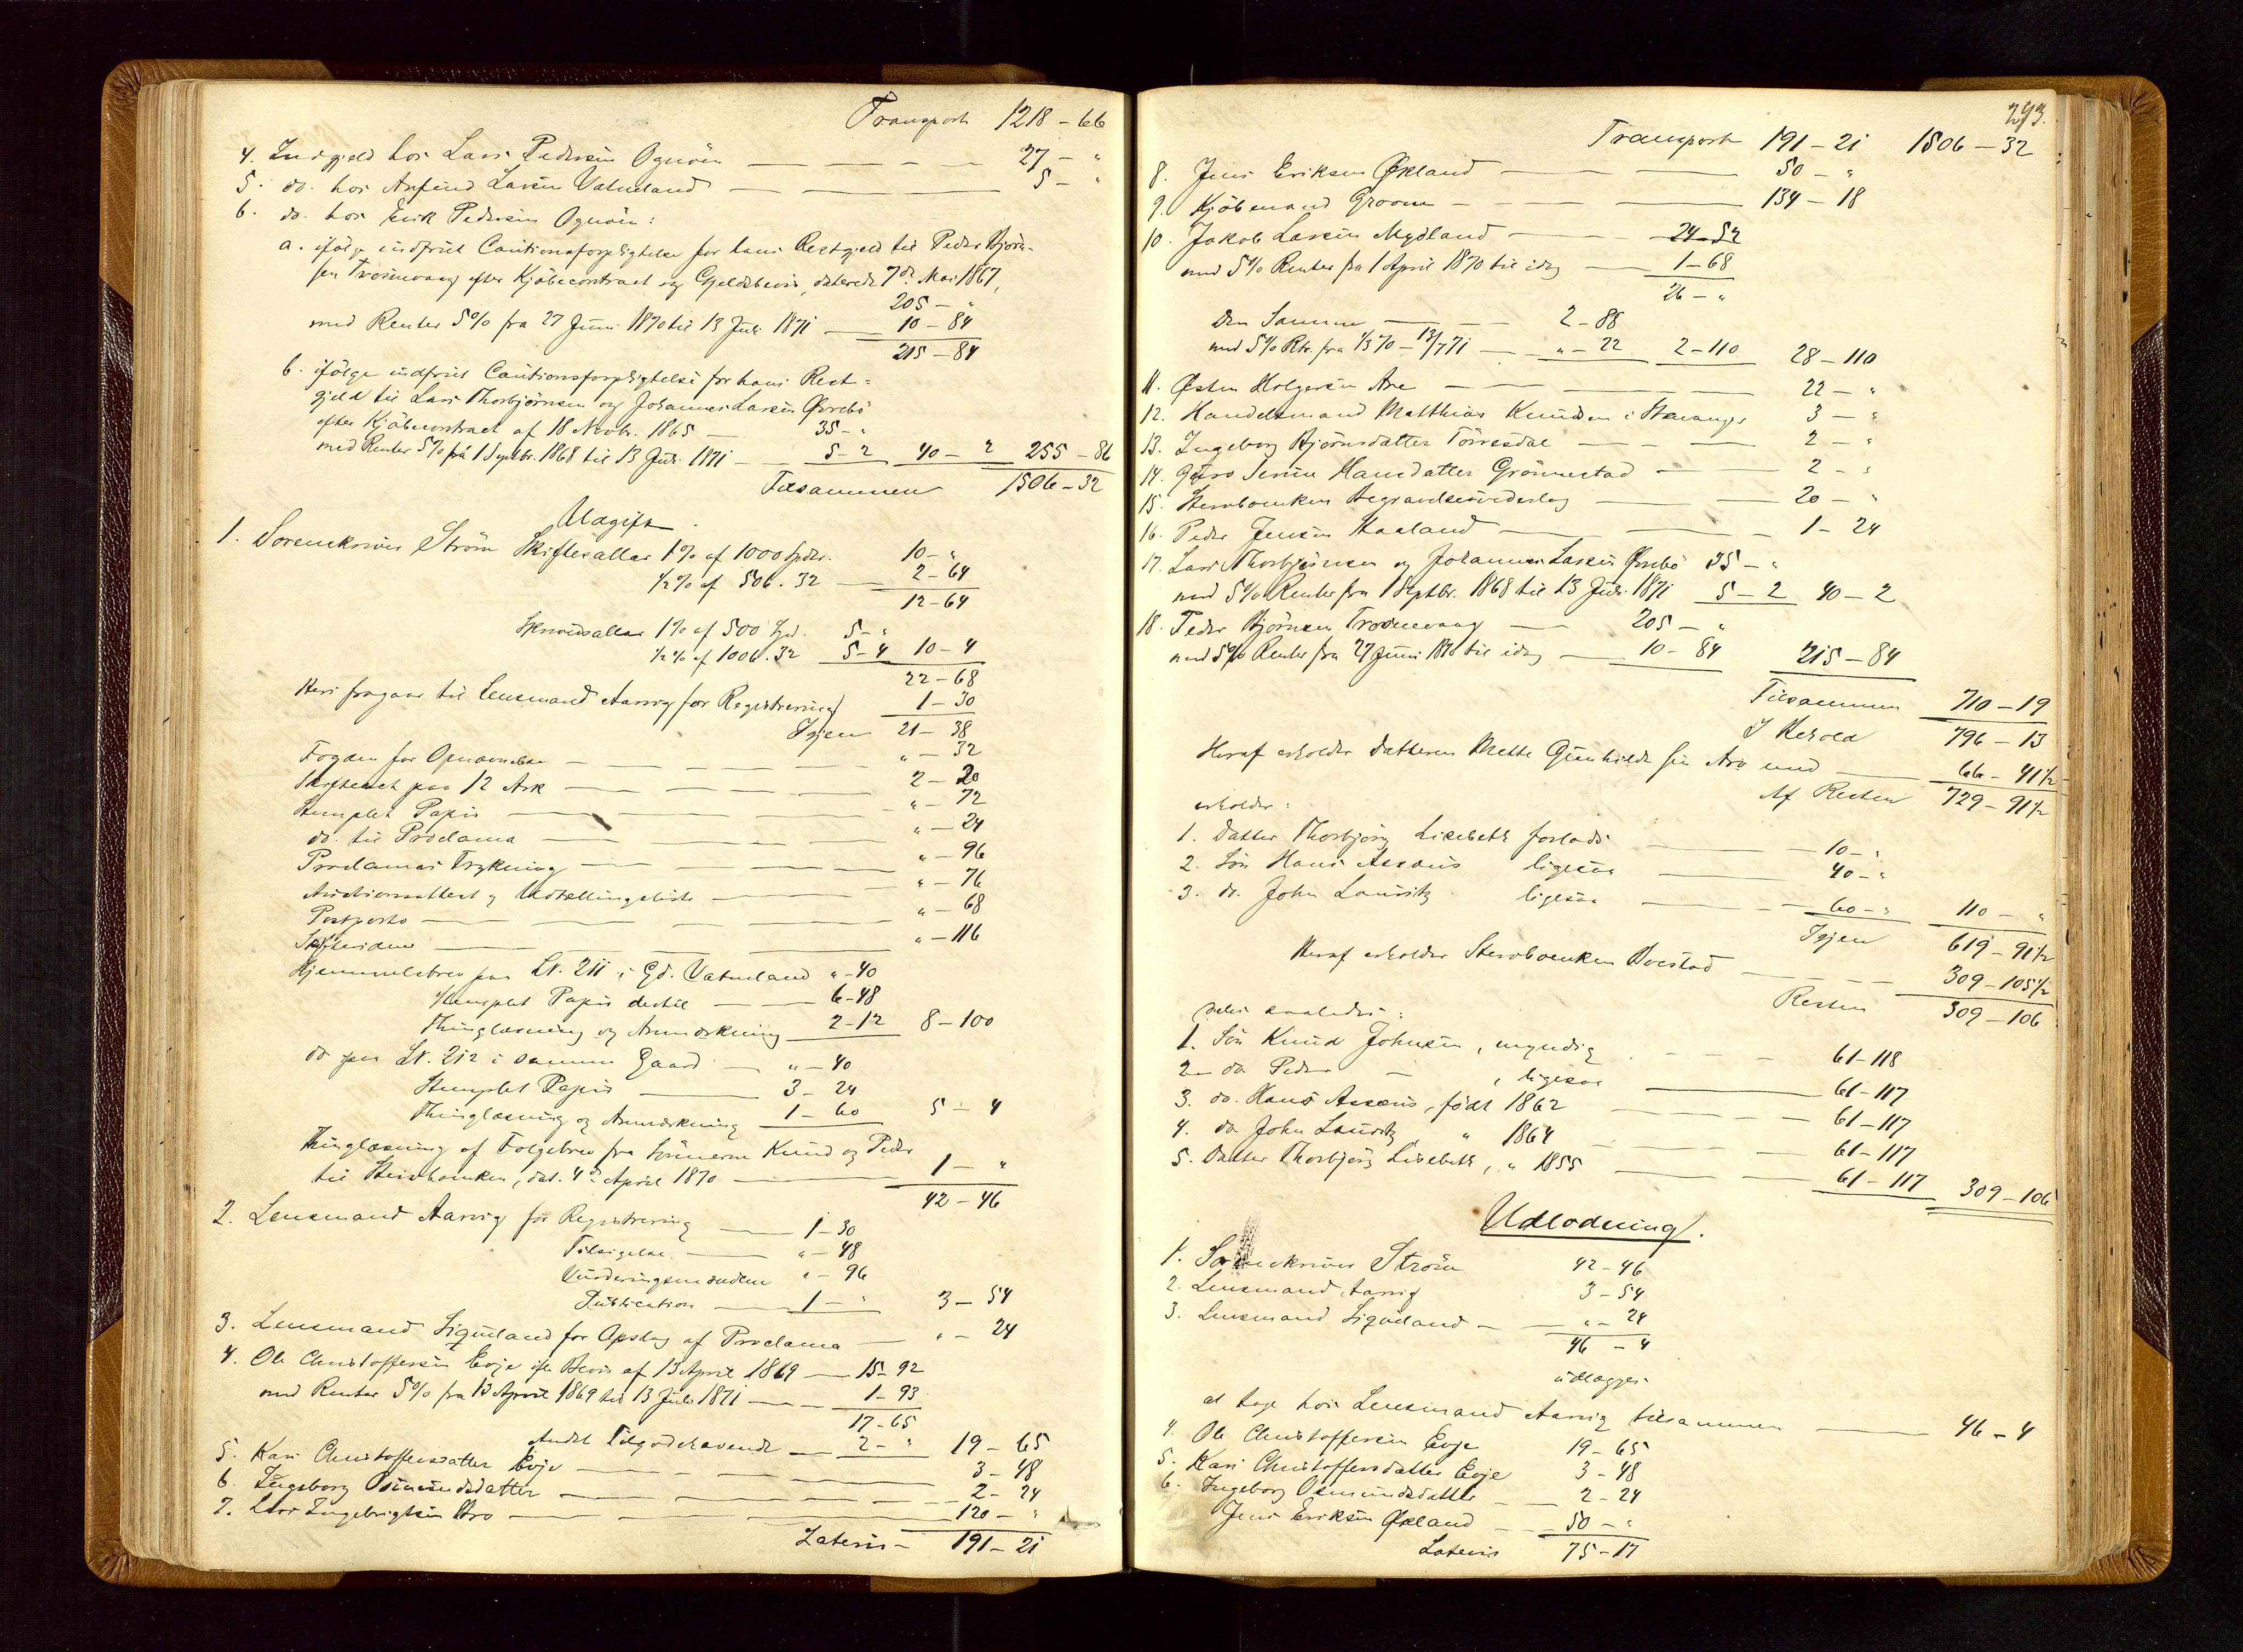 Transport 1218 - 66
4. Indgjeld hos Lars Pedersen Ognøen — 27 - "
5. do. hos Anfind Larsen Vatneland — 5 - "
6. do. hos Erik Pedersen Ognøen:
a. ifølge indfriet Cautionsforpligtelse for hans Restgjeld til Peder Bjørn-
sen Trosnevaag efter Kjøbecontract og Gjeldsbevis, daterede 7de Mai 1867,
205 - "
med Renter 5% fra 27 Juni 1870 til 13 Juli 1871 — 10 - 84
215 - 84
b. ifølge indfriet Cautionsforpligtelse for hans Rest-
gjeld til Lars Thorbjørnsen og Johannes Larsen Øvrebø
efter Kjøbecontract af 18 Novbr. 1865 — 35 - "
med Renter 5% fra 1 Septbr. 1868 til 13 Juli 1871 — 5 - 2 40 - 2 255 - 86
Tilsammen 1506 - 32
Udgift.
1. Sorenskriver Strøm Skiftesallar 1% af 1000 Spdr. 10 - "
1/2% af 506. 32 — 2 - 64
12 - 64
Skriversallar 1% af 500 Spd. 5 - "
1/2% af 1006. 32 5 - 4 10 - 4
22 - 68
Heri fragaar til Lensmand Aarrig for Registrering 1 - 30
Igjen 21 - 38
Fogden for Opnævnelse — " - 32
Skiftebrevet paa 12 Ark — 2 - 20
Stemplet Papir — " - 72
do. til Proclama — " - 24
Proclamas Trykning — " - 96
Auctionsattest og Udtællingsliste — " - 76
Postporto — " - 68
Skifteridem — " - 116
Hjemmelsbrev paa Lt. 211 i Gd. Vatneland " - 40
Stemplet Papir dertil — 6 - 48
Thinglæsning og Anmærkning 2 - 12 8 - 100
do paa Lt. 212 i samme Gaard — " - 40
Stemplet Papir — 3 - 24
Thinglæsning og Anmærkning 1 - 60 5 - 4
Thinglæsning af Følgebrev fra Sønnerne Knud og Peder
til Stervboenken, dat. 4de April 1870 — 1 - "
42 - 46
2. Lensmand Aarrig for Registrering — 1 - 30
Tilsigelse — " - 48
Vurderingsmændene " - 96
Publication — 1 - " 3 - 54
3. Lensmand Sigveland for Opslag af Proclama — " - 24
4. Ole Christoffersen Evje efter Bevis af 13 April 1869 — 15 - 92
med Renter 5% fra 13 April 1869 til 13 Juli 1871 — 1 - 93
17 - 65
Andet Tilgodehavende — 2 - " 19 - 65
5. Kari Christoffersdatter Evje — 3 - 48
6. Ingeborg Osmundsdatter — 2 - 24
7. Lars Ingebrigtsen Bro — 120 - "
Lateris - 191 - 21
293.
Transport 191 - 21 1506 - 32
8. Jens Eriksen Økland — 50 - "
9. Kjøbmand Groom — 134 - 18
10. Jakob Larsen Mydland — 24 - 52
med 5% Renter fra 1 April 1870 til idag — 1 - 68
26 - "
Den Samme — 2 - 88
med 5% Rtr. fra 1/3 70 - 13/7 71 — " - 22 2 - 110 28 - 110
11. Østen Holgersen Are — 22 - "
12. Handelsmand Matthias Knudsen i Stavanger 3 - "
13. Ingeborg Bjørnsdatter Tørresdal — 2 - "
14. Guro Serine Hansdatter Grønnestad — 2 - "
15. Stervboenken Begravelsesvederlag — 20 - "
16. Peder Jensen Haaland — 1 - 24
17. Lars Thorbjørnsen og Johannes Larsen Øvrebø 35 - "
med 5% Renter fra 1 Septbr. 1868 til 13 Juli 1871 5 - 2 40 - 2
18. Peder Bjørnsen Trosnevaag — 205 - "
med 5% Renter fra 27 Juni 1870 til idag — 10 - 84 215 - 84
Tilsammen 710 - 19
I Behold 796 - 13
Heraf erholder Datteren Mette Gunhilde sin Arv med — 66 - 41 1/2
Af Resten 729 - 91 1/2
erholder:
1. Datter Thorbjørg Lisebeth forlods — 10 - "
2. Søn Hans Assæus ligesaa — 40 - "
3. do. John Lauritz ligesaa — 60 - " 110 - "
Igjen 619 - 91 1/2
Heraf erholder Stervboenken Boeslod — 309 - 105 1/2
Resten 309 - 106
deles saaledes:
1. Søn Knud Johnsen, myndig — 61 - 118
2 - do Peder — , ligesaa — 61 - 117
3. do. Hans Assæus, født 1862 — 61 - 117
4. do John Lauritz, " 1864 — 61 - 117
5. Datter Thorbjørg Lisebeth, " 1855 — 61 - 117 309 - 106
Udlodning.
1. Sorenskriver Strøm 42 - 46
2. Lensmand Aarrig 3 - 54
3. Lensmand Sigveland — " - 24
46 - 4
udlægges
at tage hos Lensmand Aarrig tilsammen — 46 - 4
4. Ole Christoffersen Evje 19 - 65
5. Kari Christoffersdatter Evje 3 - 48
6. Ingeborg Osmundsdatter — 2 - 24
Jens Eriksen Økland — 50 - "
Lateris 75 - 17